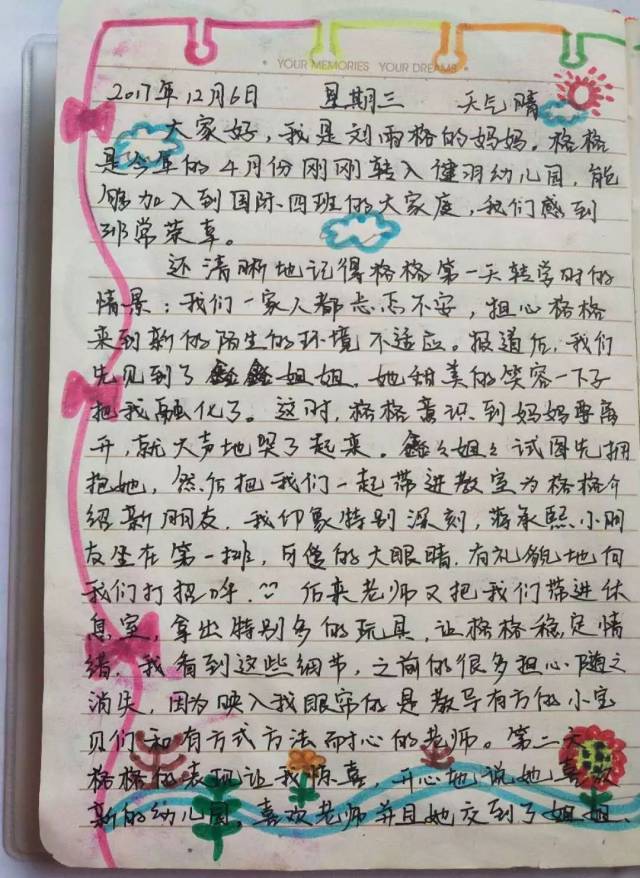 YOUR MEMORIES YOUR DREAMS
2017年12月6日 星期三 天气晴
大家好，我是刘雨格的妈妈。格格
是今年的4月份刚刚转入健羽幼儿园，能
够加入到国际四班的大家庭，我们感到
非常荣幸。
还清晰地记得格格第一天转学时的
情景：我们一家人都忐忑不安，担心格格
来到新的陌生的环境不适应。报道后，我们
先见到了鑫鑫姐姐，她甜美的笑容一下子
把我融化了。这时，格格意识到妈妈要离
开，就大声地哭了起来。鑫々姐々试图先拥
抱她，然后把我们一起带进教室为格格介
绍新朋友，我印象特别深刻，蒋承熙小朋
友坐在第一排，可爱的大眼睛，有礼貌地向
我们打招呼，后来老师又把我们带进休
息室，拿出特别多的玩具，让格格稳定情
绪，我看到这些细节，之前的很多担心随之
消失，因为映入我眼帘的是教导有方的小宝
贝们和有方式方法耐心的老师。第二天
格格的表现让我惊喜，开心地说她喜欢
新的幼儿园，喜欢老师并且她交到了姐姐、